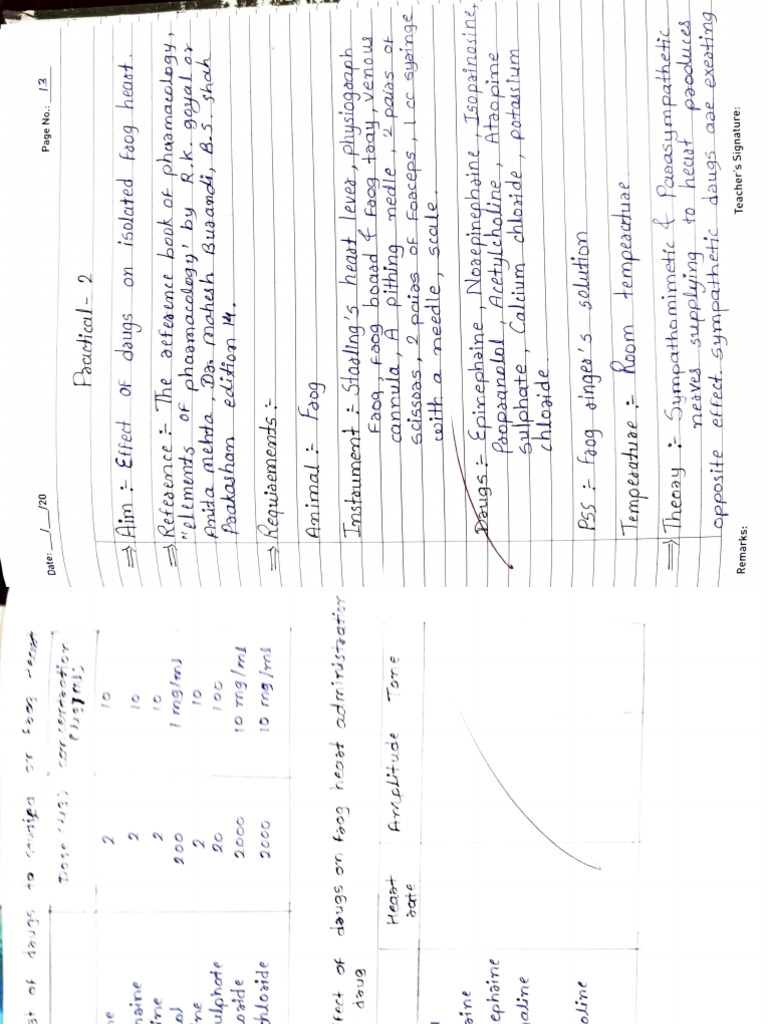 of drugs to on frog heart
Dose concentration
ne 2 10
naine 2 10
ine 2 10
ol 200 1 mg/ml
ne 2 10
ulphate 20 100
oride 2000 10 mg/ml
hloride 2000 10 mg/ml
ffect of drugs on frog heart administration
drug
Heart rate Amplitude Tone
rine
ephrine
naline
oline
Date: __/__/20 Page No.: 13
Practical - 2
⇒ Aim :- Effect of drugs on isolated frog heart.
⇒ Reference :- The reference book of pharmacology,
"elements of pharmacology' by R.K. goyal or
Anita mehta, Dr. mahesh Burandi, B.S. shah
Prakasham edition 14.
⇒ Requirements :-
Animal :- Frog
Instrument :- Starling's heart lever, physiograph
frog, frog board & frog tray, venous
cannula, A pithing nedle, 2 pairs of
scissors, 2 pairs of forceps, 1 cc syringe
with a needle, scale.
Drugs :- Epinephrine, Norepinephrine, Isoprinosine,
Propranolol, Acetylcholine, Atropine
sulphate, Calcium chloride, potassium
chloride.
PSS :- frog ringer's solution
Temperature :- Room temperature
⇒ Theory :- Sympathomimetic & Parasympathetic
nerves supplying to heart produces
opposite effect. sympathetic drugs are exerting
Remarks: Teacher's Signature: